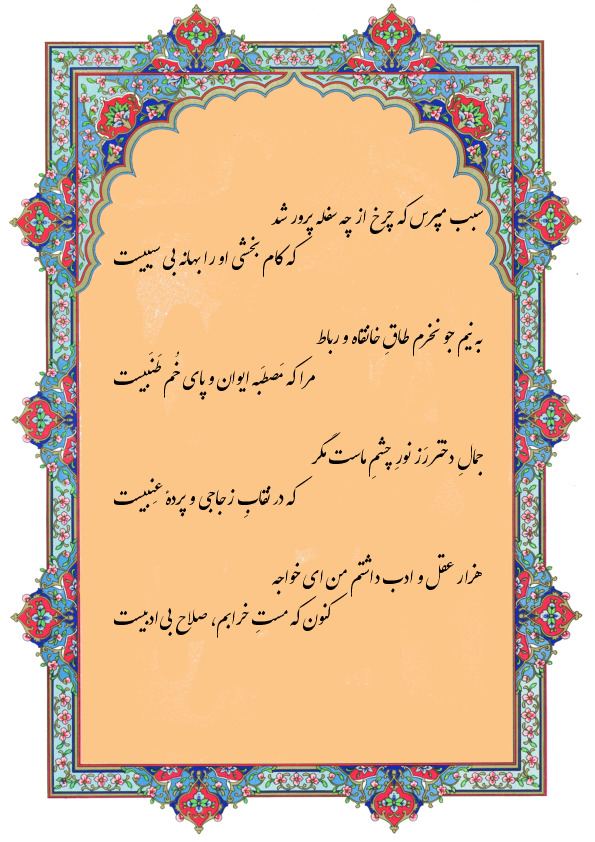 سبب مپرس که چرخ از چه سفله پرور شد
که کام بخشی او را بهانه بی سببیست
به نیم جو نخرم طاقِ خانقاه و رباط
مرا که مَصطَبه ایوان و پای خُم طَنَبیست
جمالِ دختر رَز نورِ چشمِ ماست مگر
که در نقابِ زجاجی و پردهٔ عِنِبیست
هزار عقل و ادب داشتم من ای خواجه
کنون که مستِ خرابم، صلاح بی ادبیست